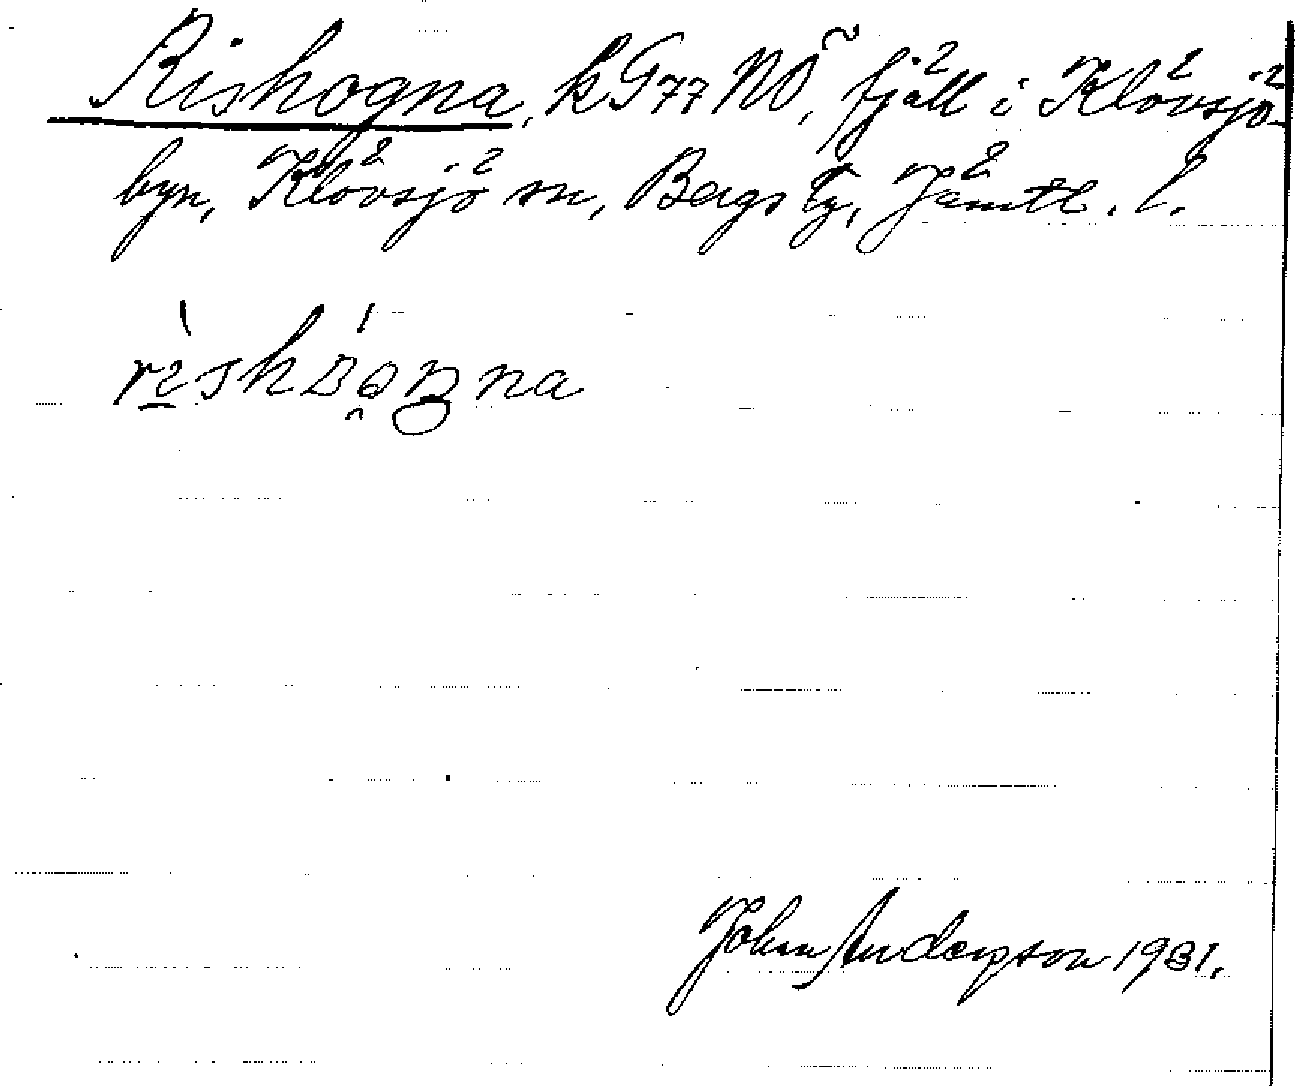 Rishogna, kG77NÖ, fjäll i Klövsjö-
byn, Klövsjö sn, Bergs tg, Jämtl. l.
John Anderson 1931.